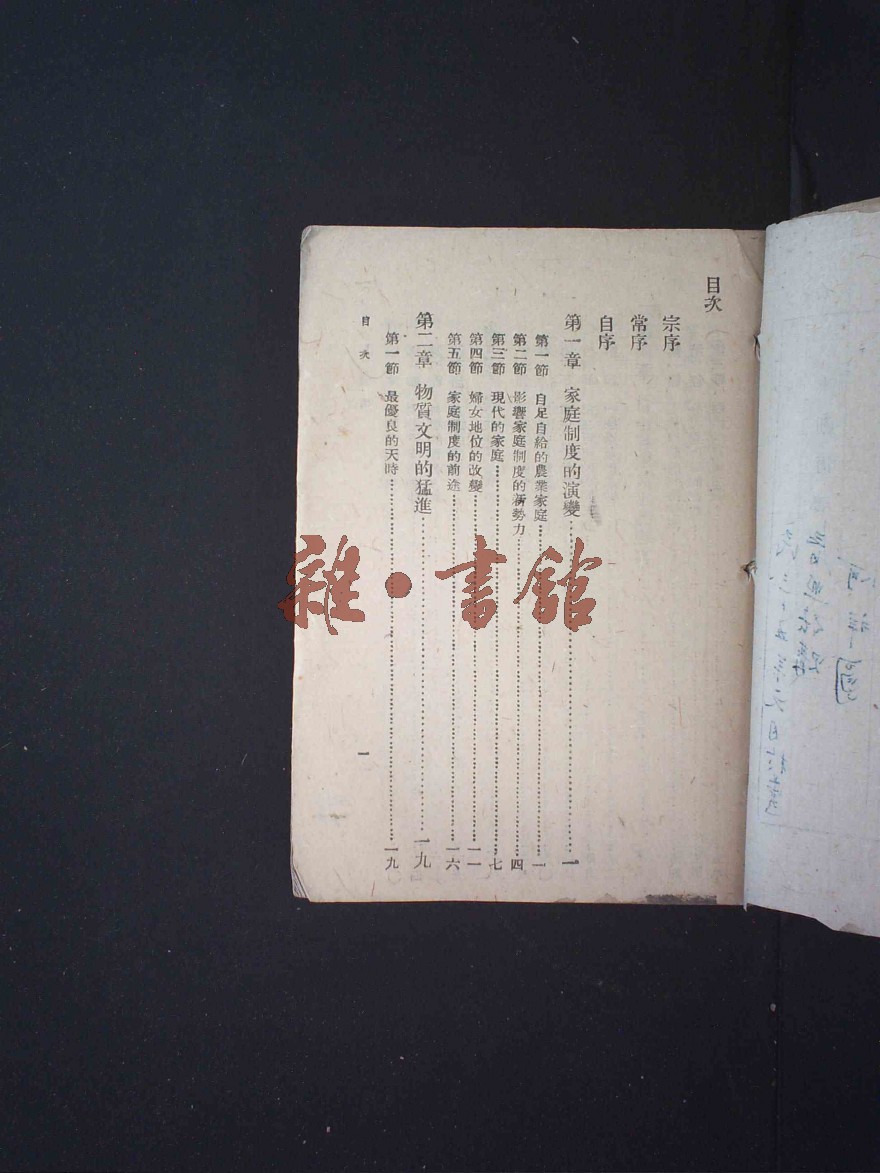 目次
宗序
常序
自序
第一章 家庭制度的演變……一
第一節 自足自給的農業家庭……一
第二節 影響家庭制度的新勢力……四
第三節 現代的家庭……七
第四節 婦女地位的改變……一一
第五節 家庭制度的前途……一六
第二章 物質文明的猛進……一九
第一節 最優良的天時……一九
目次
一
雜·書館